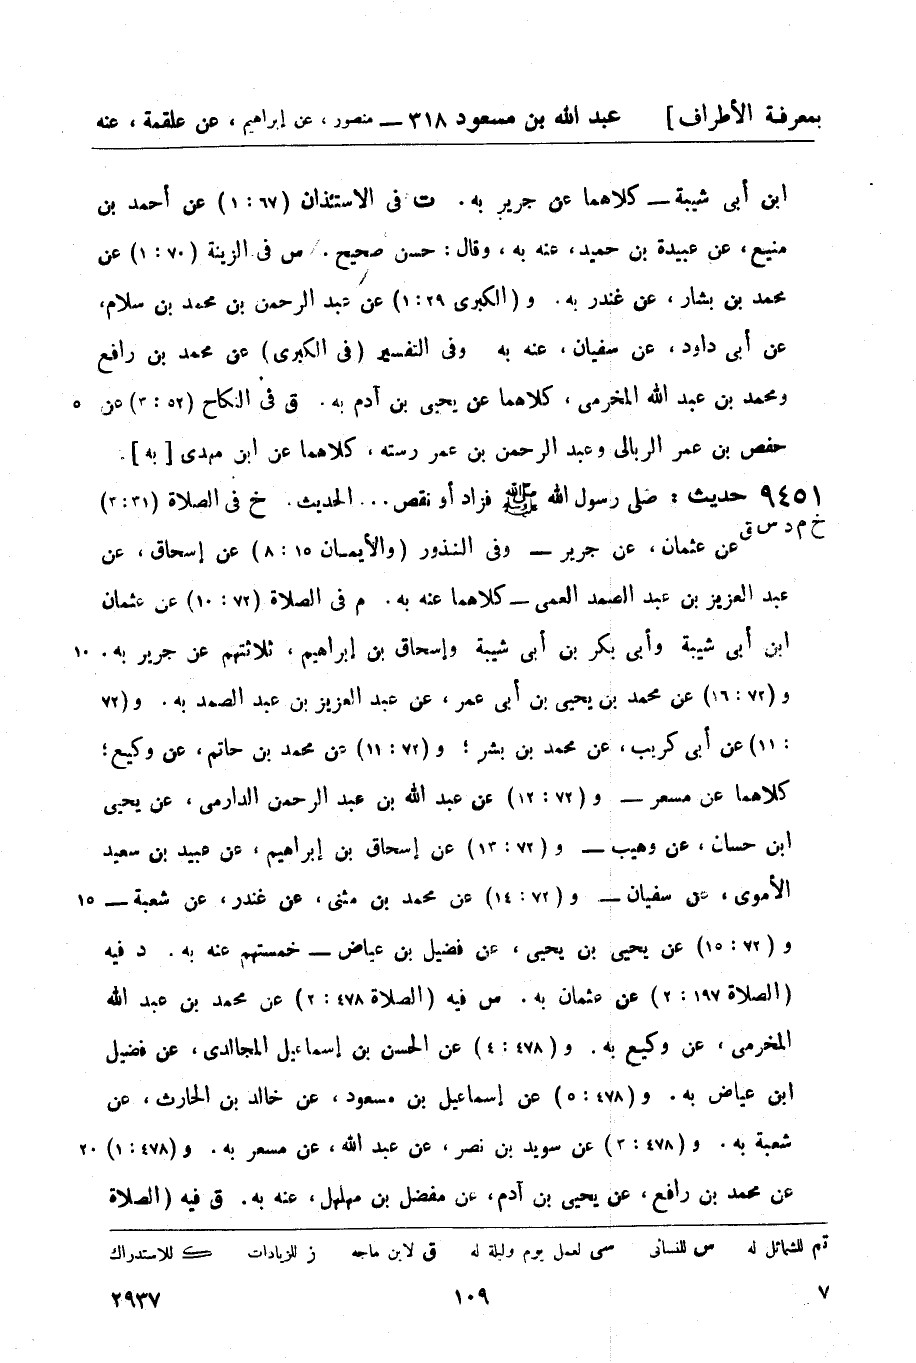 بمعرفة الأطراف] عبد الله بن مسعود ٣١٨ — منصور، عن إبراهيم، عن علقمة، عنه
ابن أبى شيبة — كلاهما عن جرير به. ت فى الاستئذان (٦٧ : ١) عن أحمد بن
منيع، عن عبيدة بن حميد، عنه به، وقال: حسن صحيح. س فى الزينة (٧٠ : ١) عن
محمد بن بشار، عن غندر به. و (الكبرى ٢٩ : ١) عن عبد الرحمن بن محمد بن سلام،
عن أبى داود، عن سفيان، عنه به وفى التفسير (فى الكبرى) عن محمد بن رافع
ومحمد بن عبد الله المخرمى، كلاهما عن يحيى بن آدم به. ق فى النكاح (٥٢ : ٣) عن ٥
حفص بن عمر الربالى وعبد الرحمن بن عمر رسته، كلاهما عن ابن مهدى [به].
٩٤٥١ حديث: صلى رسول الله ﷺ فزاد أو نقص... الحديث. خ فى الصلاة (٣١ : ٣)
خ م د س ق
عن عثمان، عن جرير — وفى النذور (والأيمان ١٥ : ٨) عن إسحاق، عن
عبد العزيز بن عبد الصمد العمى — كلاهما عنه به. م فى الصلاة (٧٢ : ١٠) عن عثمان
ابن أبى شيبة وأبى بكر بن أبى شيبة وإسحاق بن إبراهيم، ثلاثتهم عن جرير به. ١٠
و (٧٢ : ١٦) عن محمد بن يحيى بن أبى عمر، عن عبد العزيز بن عبد الصمد به. و (٧٢
: ١١) عن أبى كريب، عن محمد بن بشر؛ و (٧٢ : ١١) عن محمد بن حاتم، عن وكيع؛
كلاهما عن مسعر — و (٧٢ : ١٢) عن عبد الله بن عبد الرحمن الدارمى، عن يحيى
ابن حسان، عن وهيب — و (٧٢ : ١٣) عن إسحاق بن إبراهيم، عن عبيد بن سعيد
الأموى، عن سفيان — و (٧٢ : ١٤) عن محمد بن مثنى، عن غندر، عن شعبة — ١٥
و (٧٢ : ١٥) عن يحيى بن يحيى، عن فضيل بن عياض — خمستهم عنه به. د فيه
(الصلاة ١٩٧ : ٢) عن عثمان به. س فيه (الصلاة ٤٧٨ : ٢) عن محمد بن عبد الله
المخرمى، عن وكيع به. و (٤٧٨ : ٤) عن الحسن بن إسماعيل المجالدى، عن فضيل
ابن عياض به. و (٤٧٨ : ٥) عن إسماعيل بن مسعود، عن خالد بن الحارث، عن
شعبة به. و (٤٧٨ : ٣) عن سويد بن نصر، عن عبد الله، عن مسعر به. و (٤٧٨ : ١) ٢٠
عن محمد بن رافع، عن يحيى بن آدم، عن مفضل بن مهلهل، عنه به. ق فيه (الصلاة
تم للشمائل له س للنسائى سى لعمل يوم وليلة له ق لابن ماجه ز للزيادات ك للاستدراك
٧ ١٠٩ ٢٩٣٧